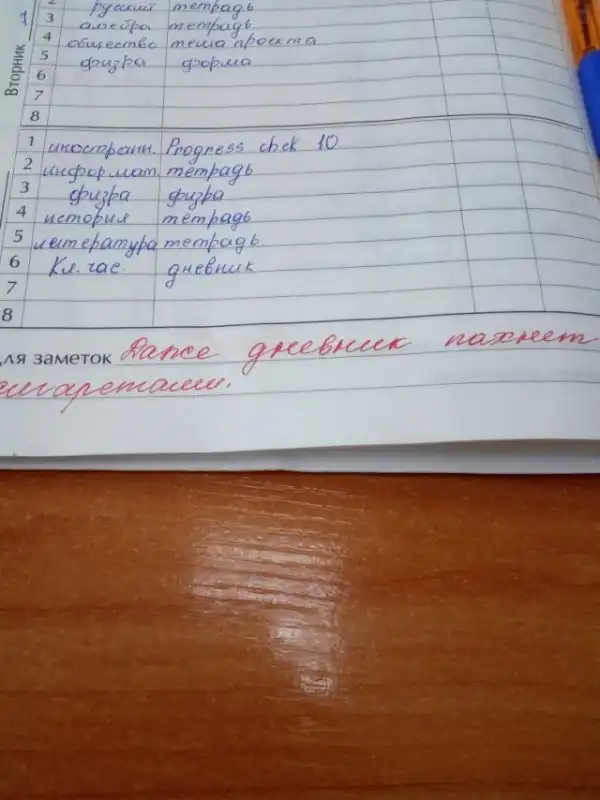 Вторник
2 русский тетрадь
3 алгебра тетрадь
4 общество тема проекта
5 физра форма
6
7
8
1 иностранн. Progress chek 10
2 информат. тетрадь
3 физра физра
4 история тетрадь
5 литература тетрадь
6 Кл. час. дневник
7
8
ля заметок Даже дневник пахнет
сигаретами.